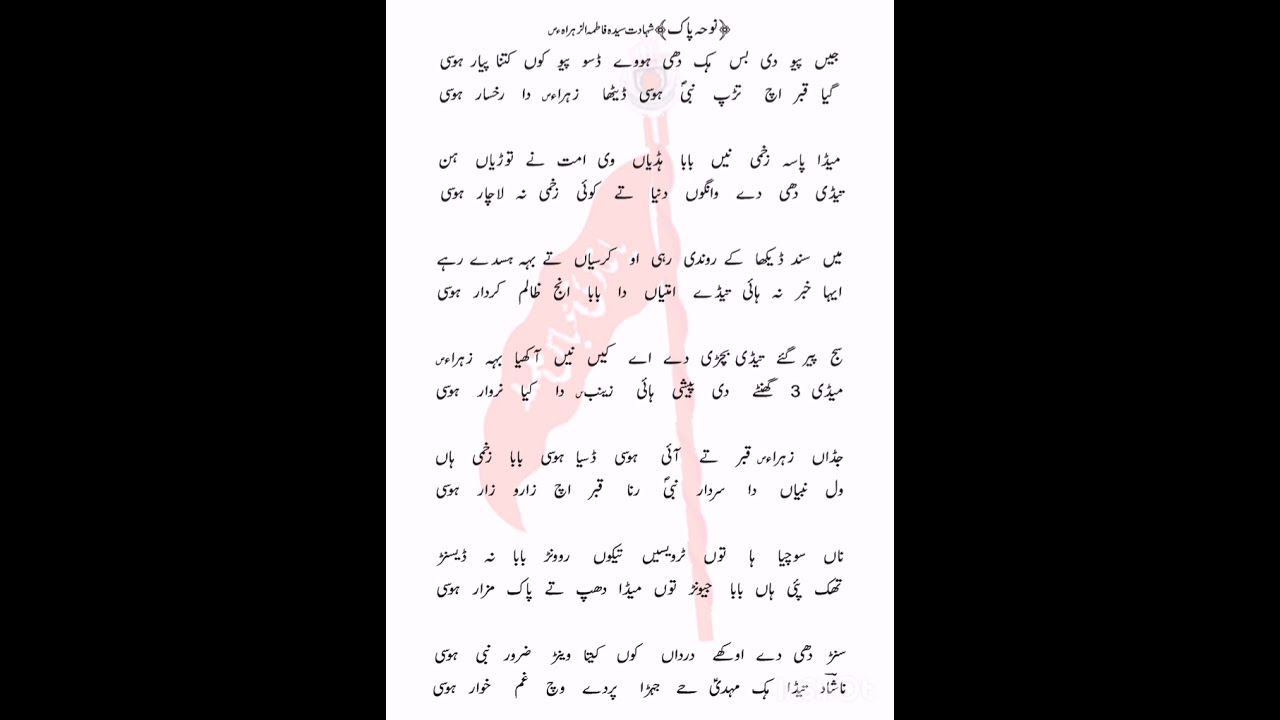 ﴿نوحہ پاک﴾ شہادت سیدہ فاطمہ الزہراءس
جیں پیو دی بس ہک دھی ہووے ڈسو پیو کوں کتنا پیار ہوسی
گیا قبر اچ تڑپ نبیؐ ہوسی ڈیٹھا زہراءس دا رخسار ہوسی
میڈا پاسہ زخمی نیں بابا ہڈیاں وی امت نے توڑیاں ہن
تیڈی دھی دے وانگوں دنیا تے کوئی زخمی نہ لاچار ہوسی
میں سند ڈیکھا کے روندی رہی او کرسیاں تے بہہ ہسدے رہے
ایہا خبر نہ ہائی تیڈے امتیاں دا بابا انج ظالم کردار ہوسی
سج پیر گئے تیڈی بچڑی دے اے کیں نیں آکھیا بہہ زہراءس
میڈی 3 گھنٹے دی پیشی ہائی زینبس دا کیا نروار ہوسی
جڈاں زہراءس قبر تے آئی ہوسی ڈسیا ہوسی بابا زخمی ہاں
ول نبیاں دا سردار نبیؐ رنا قبر اچ زارو زار ہوسی
ناں سوچیا ہا توں ٹرویسیں تیکوں روونڑ بابا نہ ڈیسنڑ
تھک پئی ہاں بابا جیونڑ توں میڈا دھپ تے پاک مزار ہوسی
سنڑ دھی دے اوکھے درداں کوں کیتا وینڑ ضرور نبی ہوسی
ناشاد تیڈا ہک مہدیؑ حے جہڑا پردے وچ غم خوار ہوسی